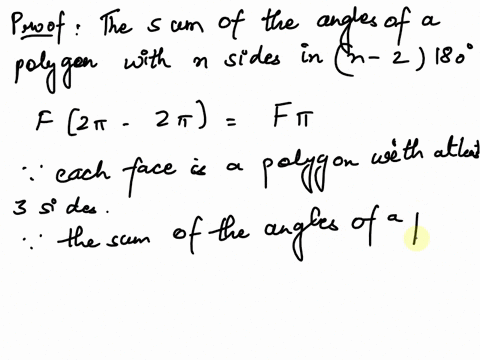 Proof: The sum of the angles of a
polygon with n sides in (n-2) 180°
F (2π - 2π) = Fπ
∵ each face is a polygon with atleast
3 sides.
∵ the sum of the angles of a